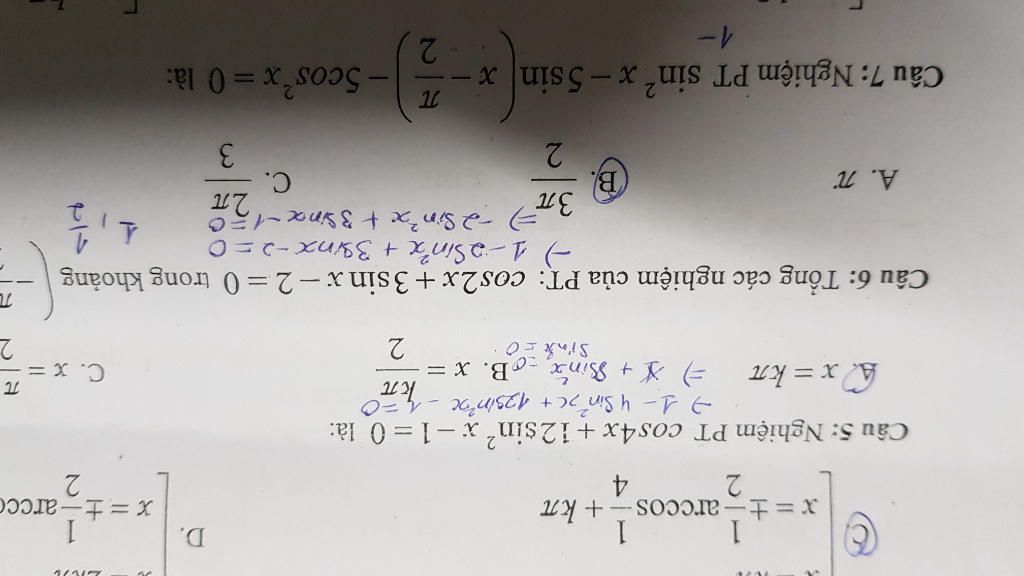 C. x = ± 1/2 arccos 1/4 + kπ D. x = ± 1/2
Câu 5: Nghiệm PT cos4x + 12sin² x − 1 = 0 là:
→ 1 − 4 sin²x + 12sin²x − 1 = 0
A. x = kπ ⇒ B. x = kπ/2 C. x = π/2
Câu 6: Tổng các nghiệm của PT: cos2x + 3sin x − 2 = 0 trong khoảng
→ 1 − 2sin²x + 3sinx − 2 = 0
⇒ −2sin²x + 3sinx − 1 = 0 1, 1/2
A. π B. 3π/2 C. 2π/3
Câu 7: Nghiệm PT sin² x − 5sin(x − π/2) − 5cos² x = 0 là:
1−